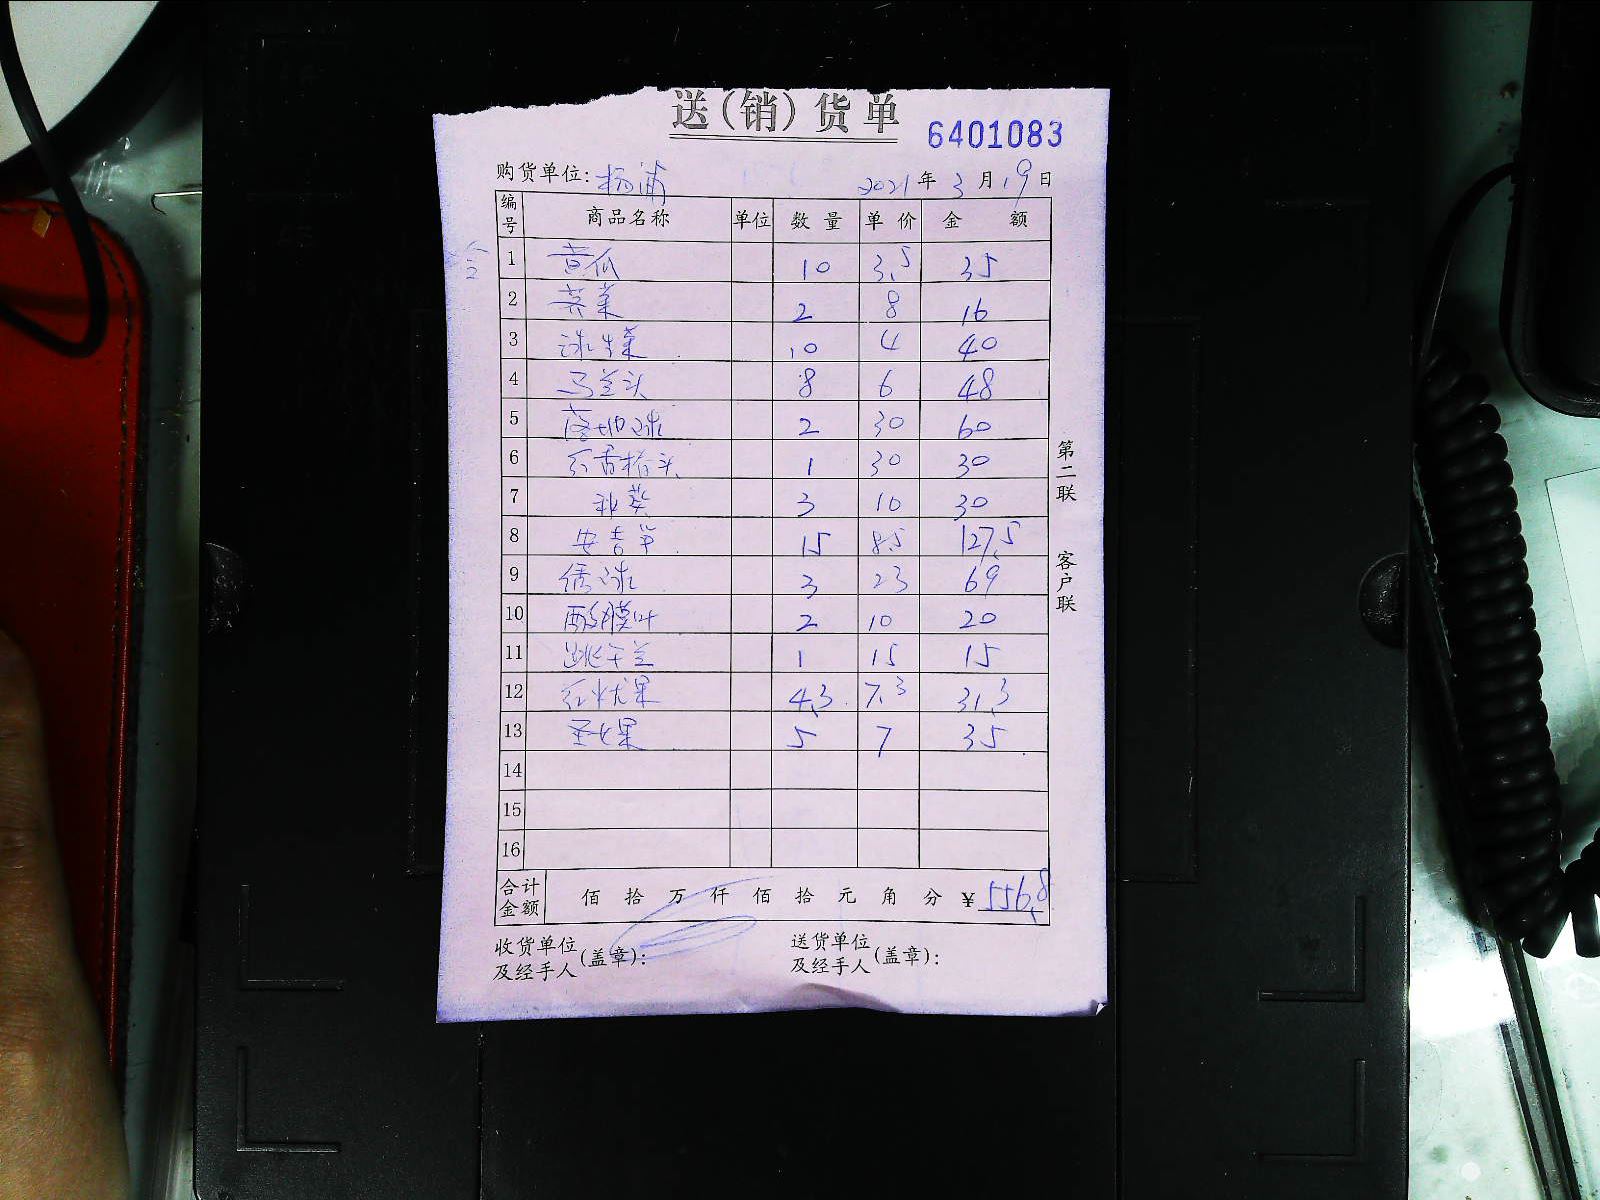 送(销)货单
6401083
购货单位: 杨浦 2021年3月19日
编号 商品名称 单位 数量 单价 金额
1 黄瓜 10 3.5 35
2 荠菜 2 8 16
3 球生菜 10 4 40
4 马兰头 8 6 48
5 2 30 60
6 30 30 1
7 秋葵 3 10 30
8 安吉笋 15 8.5 127.5
9 3 23 69
10 酸膜叶 2 10 20
11 跳千兰 1 15 15
12 4.3 7.3 31.3
13 圣女果 5 7 35
14
15
16
合计金额 佰拾万仟佰拾元角分 ¥556.8
收货单位及经手人(盖章):
送货单位及经手人(盖章):
第二联 客户联